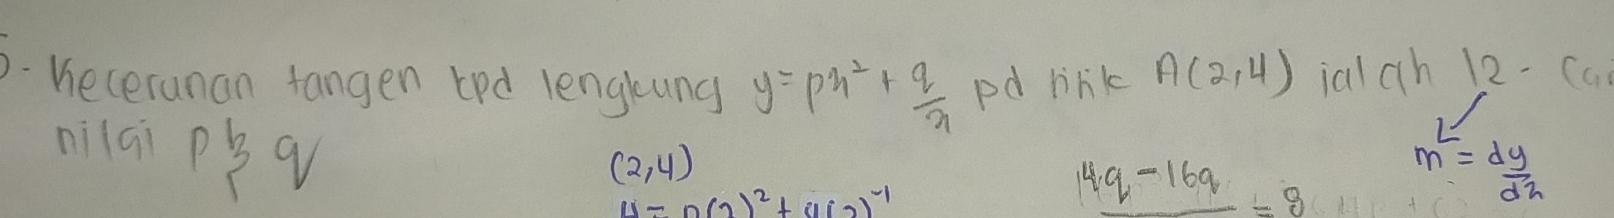 5. Kecerunan tangen kpd lengkung y = px² + q/x pd titik A(2,4) ialah 12. Cari
nilai p & q
(2,4)
4 = p(2)² + q(2)⁻¹
m = dy/dx